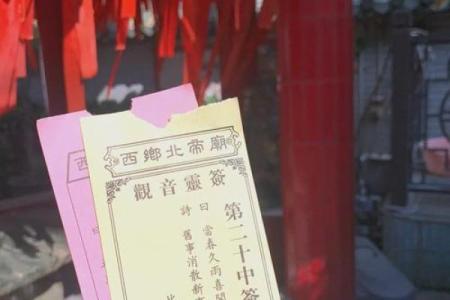 西鄉北帝廟
觀音靈簽
第二十中簽
曰 當春久雨喜開
詩 舊事消散新事
此
西